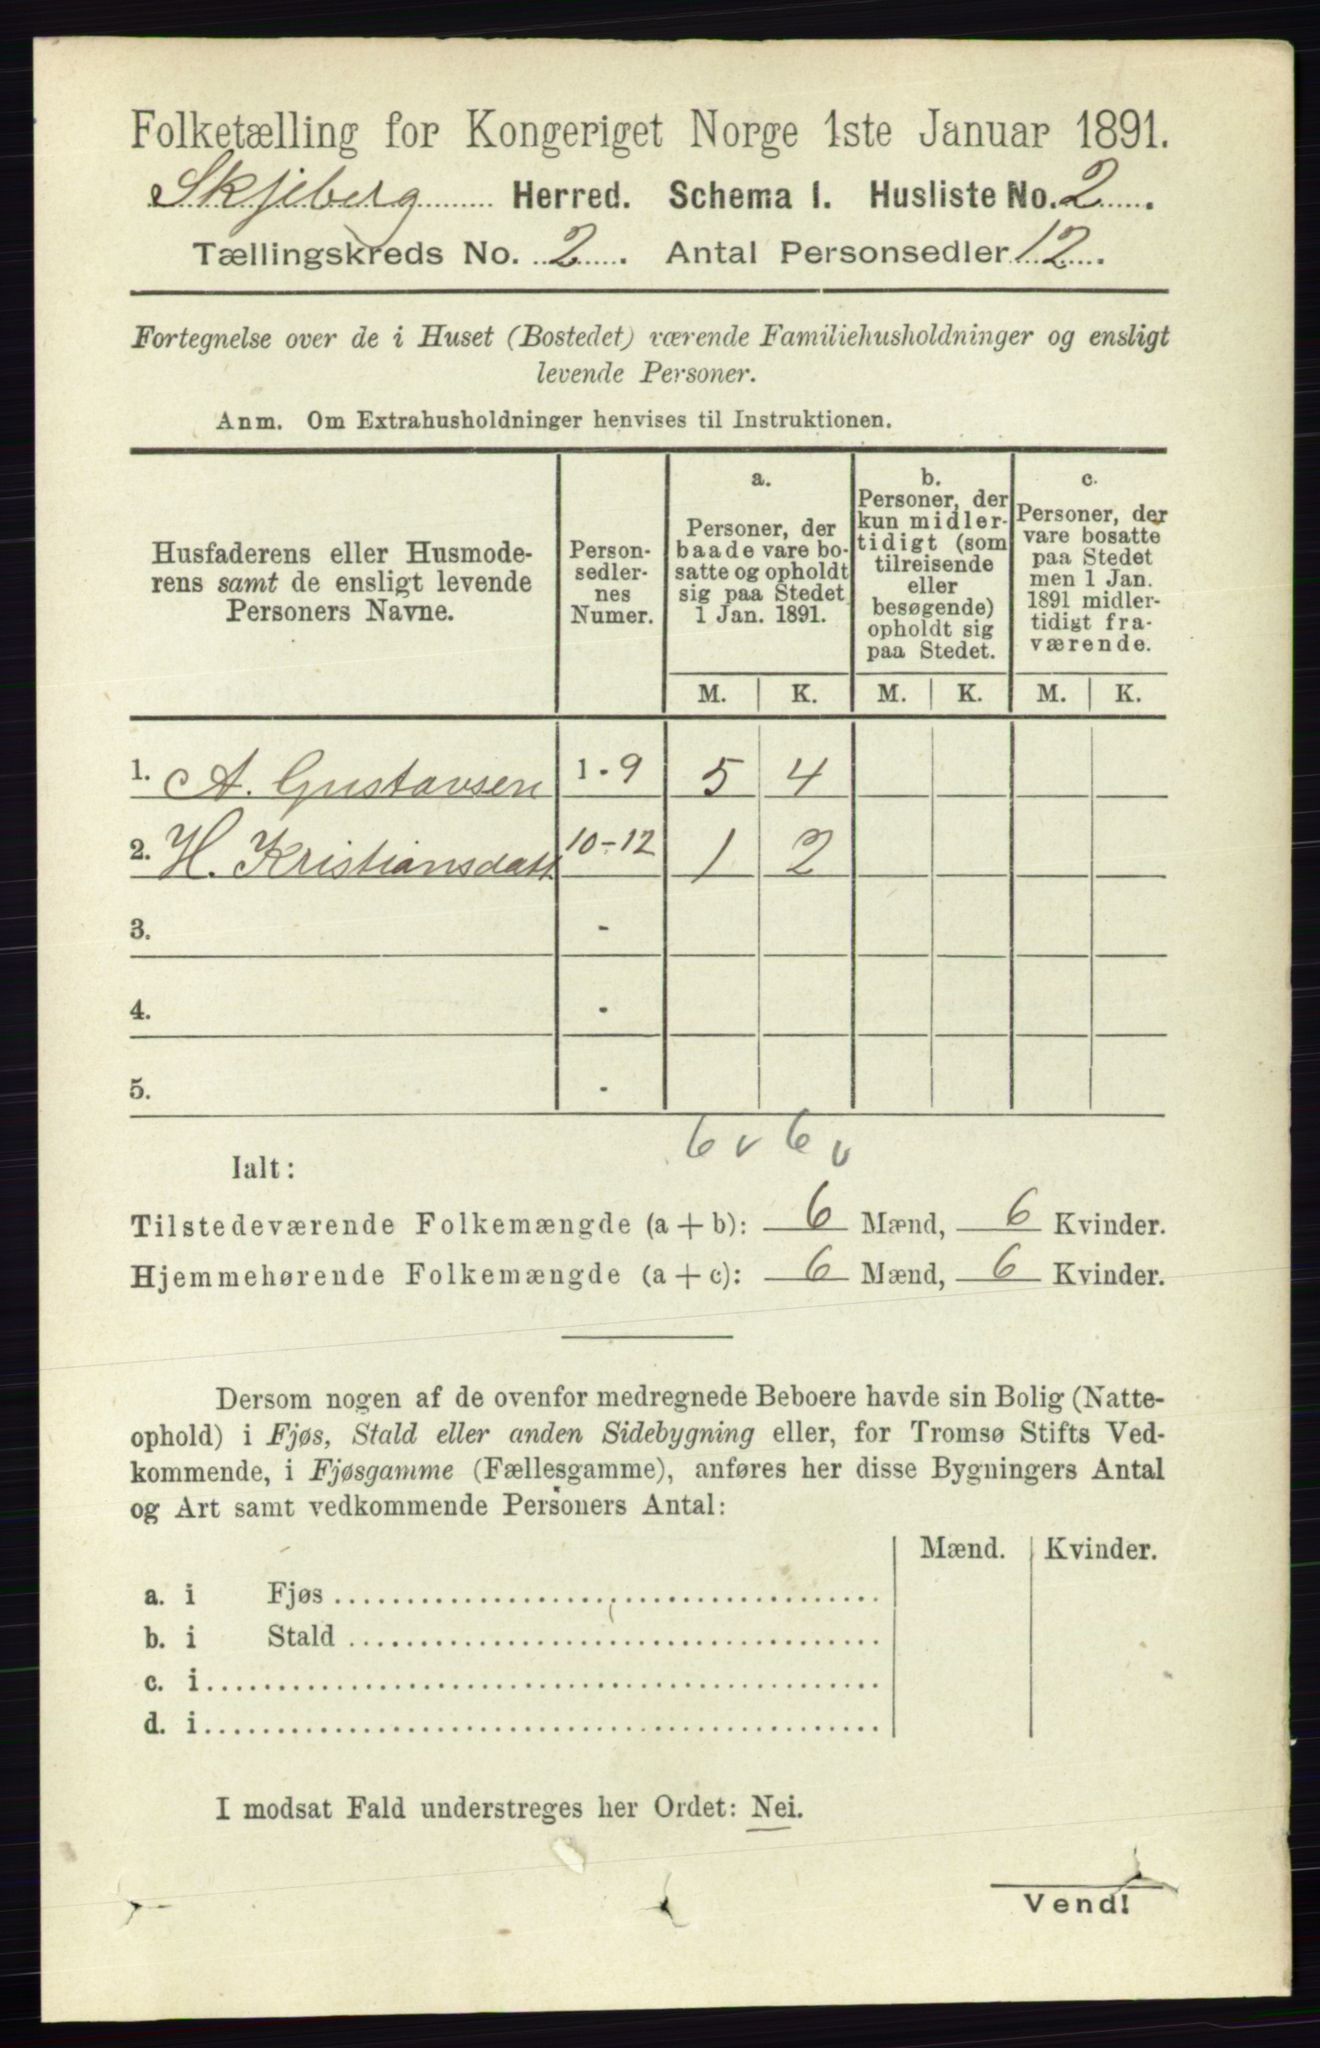 Folketælling for Kongeriget Norge 1ste Januar 1891.
Skjeberg Herred. Schema I. Husliste No. 2
Tællingskreds No. 2. Antal Personsedler 12.
Fortegnelse over de i Huset (Bostedet) værende Familiehusholdninger og ensligt
levende Personer.
Anm. Om Extrahusholdninger henvises til Instruktionen.
Husfaderens eller Husmode-
rens samt de ensligt levende
Personers Navne.
Person-
sedler-
nes
Numer.
a.
Personer, der
baade vare bo-
satte og opholdt
sig paa Stedet
1 Jan. 1891.
b.
Personer, der
kun midler-
tidigt (som
tilreisende
eller
besøgende)
opholdt sig
paa Stedet.
c.
Personer, der
vare bosatte
paa Stedet
men 1 Jan.
1891 midler-
tidigt fra-
værende.
M. K. M. K. M. K.
1. A. Gustavsen 1-9 5 4
2. H. Kristiansdatt 10-12 1 2
3. -
4. -
5. -
6 v 6 v
Ialt:
Tilstedeværende Folkemængde (a + b): 6 Mænd, 6 Kvinder.
Hjemmehørende Folkemængde (a + c): 6 Mænd, 6 Kvinder.
Dersom nogen af de ovenfor medregnede Beboere havde sin Bolig (Natte-
ophold) i Fjøs, Stald eller anden Sidebygning eller, for Tromsø Stifts Ved-
kommende, i Fjøsgamme (Fællesgamme), anføres her disse Bygningers Antal
og Art samt vedkommende Personers Antal:
Mænd. Kvinder.
a. i Fjøs
b. i Stald
c. i
d. i
I modsat Fald understreges her Ordet: Nei.
Vend!